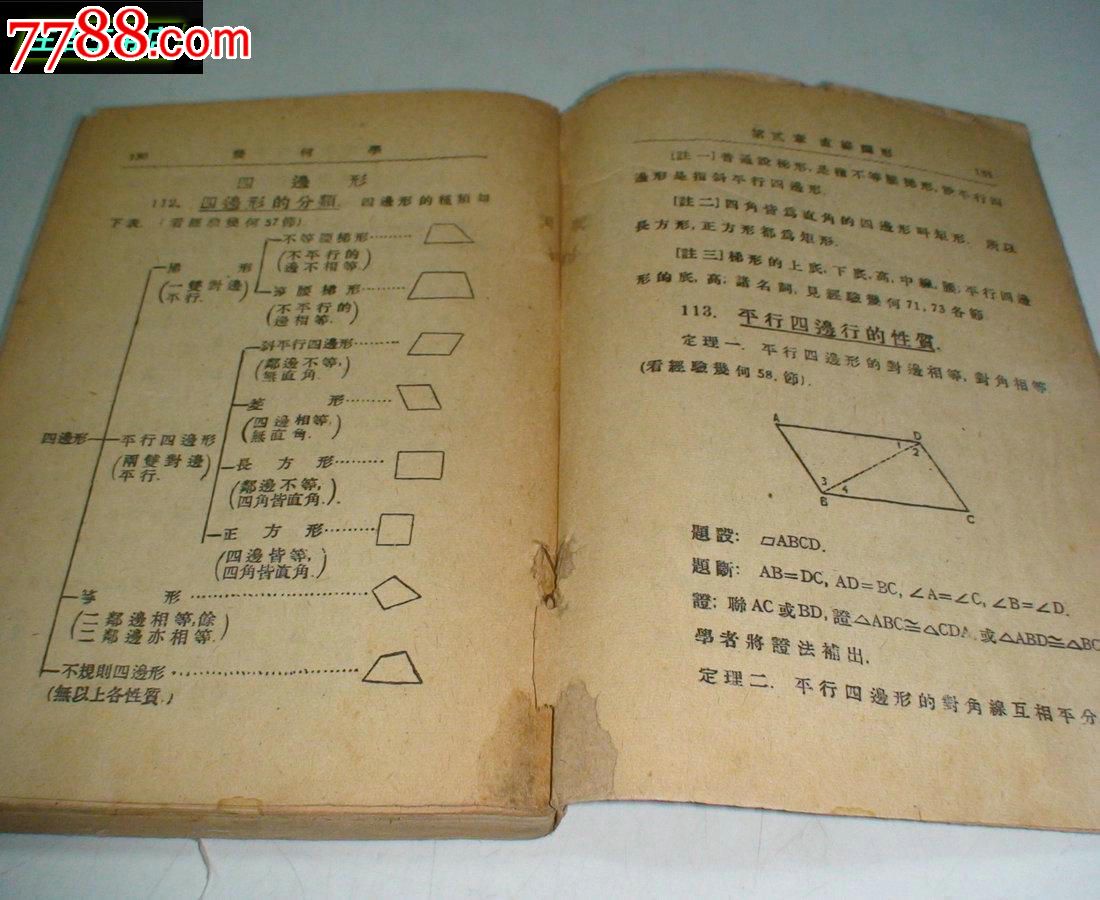 7788.com
130 幾何學
四邊形
112. 四邊形的分類. 四邊形的種類如
下表. (看經驗幾何57節)
不等腰梯形
(不平行的
邊不相等.)
梯形
(一雙對邊
平行.)
等腰梯形
(不平行的
邊相等.)
斜平行四邊形
(鄰邊不等,
無直角.)
菱形
(四邊相等,
無直角.)
四邊形
平行四邊形
(兩雙對邊
平行.)
長方形
(鄰邊不等,
四角皆直角.)
正方形
(四邊皆等,
四角皆直角.)
箏形
(二鄰邊相等,餘
二鄰邊亦相等.)
不規則四邊形
(無以上各性質.)
第弍章 直線圖形 131
[註一]普通說梯形,是指不等腰梯形,說平行四
邊形是指斜平行四邊形.
[註二]四角皆爲直角的四邊形叫矩形. 所以
長方形,正方形都爲矩形.
[註三]梯形的上底,下底,高,中線,腰;平行四邊
形的底,高;諸名詞,見經驗幾何71,73各節
113. 平行四邊行的性質.
定理一. 平行四邊形的對邊相等,對角相等.
(看經驗幾何58.節).
A
D
1 2
3 4
B
C
題設: ▱ABCD.
題斷: AB=DC, AD=BC, ∠A=∠C, ∠B=∠D.
證: 聯AC或BD, 證△ABC≅△CDA, 或△ABD≅△BC
學者將證法補出.
定理二. 平行四邊形的對角線互相平分